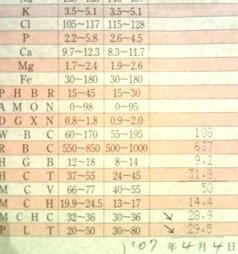 K 3.5~5.1 3.5~5.1
Cl 105~117 115~128
P 2.2~5.8 2.6~4.5
Ca 9.7~12.3 8.3~11.7
Mg 1.7~2.4 1.9~2.6
Fe 30~180 30~180
P H B R 15~45 15~30
A M O N 0~98 0~95
D G X N 0.8~1.8 0.9~2.0
W B C 60~170 55~195 108
R B C 550~850 500~1000 637
H G B 12~18 8~14 9.2
H C T 37~55 24~45 31.8
M C V 66~77 40~55 50
M C H 19.9~24.5 13~17 14.4
M C H C 32~36 30~36 ↘ 28.9
P L T 20~50 30~80 ↘ 29.5
'07 年 4 月 4 日